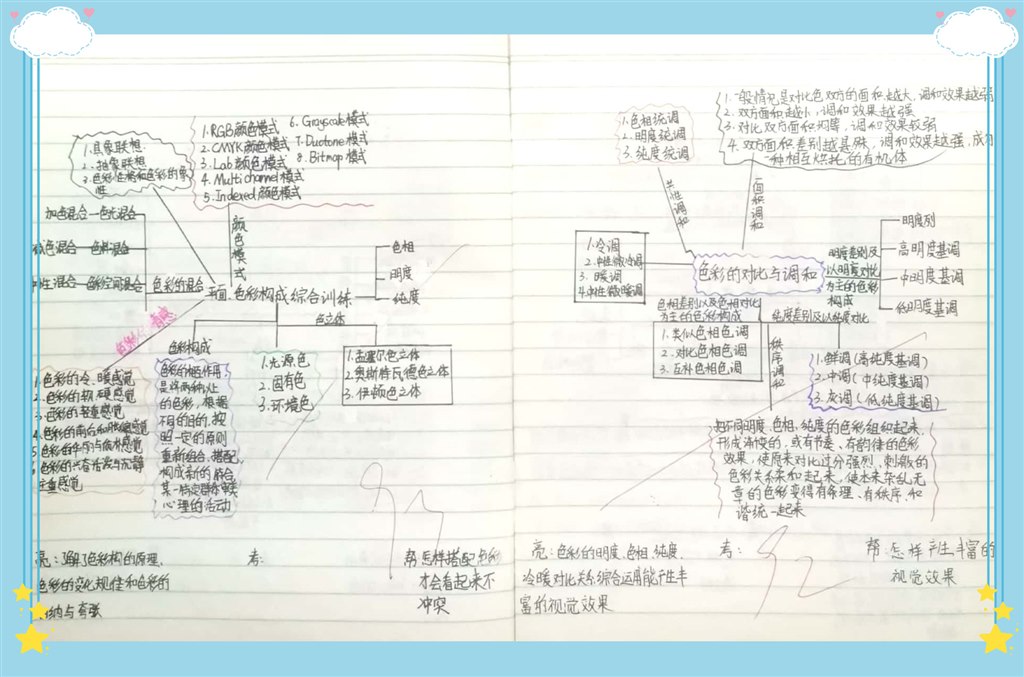 1.具象联想
2.抽象联想
1.RGB颜色模式
2.CMYK颜色模式
3.Lab颜色模式
4.Multichannel模式
5.Indexed颜色模式
6.Grayscale模式
7.Duotone模式
8.Bitmap模式
颜色模式
加色混合—色光混合
色混合—色料混合
性混合—色彩空间混合
色彩的混合
平面色彩构成综合训练
色相
明度
纯度
色彩构成
色立体
色彩的
是将两种以上
的色彩，根据
不同的目的，按
照一定的原则
重新组合、搭配，
构成新的
心理的活动
1.光源色
2.固有色
3.环境色
1.孟塞尔色立体
2.奥斯特瓦德色立体
3.伊顿色立体
1.色彩的冷、暖感觉
2.色彩的软、硬感觉
3.色彩的轻重感觉
亮：了解了色彩构的原理、
色彩的变化规律和色彩的
考：
帮：怎样搭配色彩
才会看起来不
冲突
1.色相统调
2.明度统调
3.纯度统调
共性调和
1.一般情况是对比色双方的面积越大，调和效果越弱
2.双方面积越小，调和效果越强
3.对比双方面积均等，调和效果较弱
4.双方面积差别越悬殊，调和效果越强，成为
一种相互烘托的有机体
面积调和
1.冷调
2.中性微冷调
3.暖调
4.中性微暖调
色彩的对比与调和
明度差别及
以明度对比
为主的色彩
构成
明度列
高明度基调
中明度基调
低明度基调
色相差别以及色相对比
为主的色彩构成
1.类似色相色调
2.对比色相色调
3.互补色相色调
秩序调和
纯度差别及以纯度对比
1.鲜调（高纯度基调）
2.中调（中纯度基调）
3.灰调（低纯度基调）
把不同明度、色相、纯度的色彩组织起来，
形成渐变的，或有节奏、有韵律的色彩
效果，使原来对比过分强烈、刺激的
色彩关系柔和起来，使本来杂乱无
章的色彩变得有条理、有秩序、和
谐统一起来
亮：色彩的明度、色相、纯度、
冷暖对比关系综合运用能产生丰
富的视觉效果
考：
帮：怎样产生丰富的
视觉效果